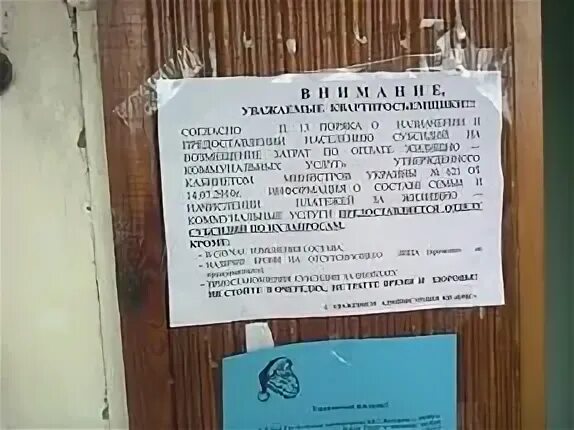 ВНИМАНИЕ,
УВАЖАЕМЫЕ КВАРТИРОСЪЕМЩИКИ!!!
СОГЛАСНО П. 13 ПОРЯКА О НАЗНАЧЕНИИ И
ПРЕДОСТАВЛЕНИИ НАСЕЛЕНИЮ СУБСИДИЙ НА
ВОЗМЕЩЕНИЕ ЗАТРАТ ПО ОПЛАТЕ ЖИЛИЩНО –
КОММУНАЛЬНЫХ УСЛУГ» УТВЕРЖДЕННОГО
КАБИНЕТОМ МИНИСТРОВ УКРАИНЫ №
ИНФОРМАЦИЯ О СОСТАВЕ СЕМЬИ И
НАЧИСЛЕНИИ ПЛАТЕЖЕЙ ЗА ЖИЛИЩНО –
КОММУНАЛЬНЫЕ УСЛУГИ ПРЕДОСТАВЛЯЕТСЯ ОТДЕЛУ
СУБСИДИЙ ПО ИХ ЗАПРОСАМ.
КРОМЕ:
- В СЛУЧАЕ ИЗМЕНЕНИЯ СОСТАВА,
- НАЛИЧИЯ БРОНИ НА ОТСУТСТВУЮЩЕГО
- ПРИОСТАНОВЛЕНИЯ СУБСИДИИ ЗА
НЕ СТОЙТЕ В ОЧЕРЕДЯХ, НЕ ТРАТТЕ ВРЕМЯ И ЗДОРОВЬЕ!
С УВАЖЕНИЕМ АДМИНИСТРАЦИЯ